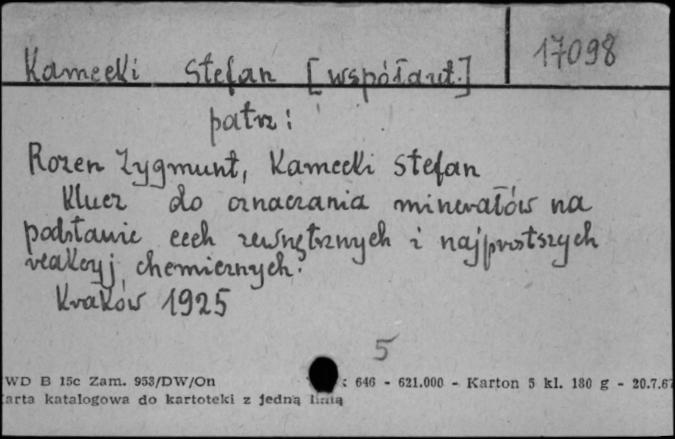 17098
Kamecki Stefan [współaut.]
patrz:
Rozen Zygmunt, Kamecki Stefan
Klucz do oznaczania minerałów na
podstawie cech zewnętrznych i najprostszych
reakcyj chemicznych.
Kraków 1925
5
WD B 15c Zam. 953/DW/On : 646 - 621.000 - Karton 5 kl. 180 g - 20.7.67
arta katalogowa do kartoteki z jedną linią